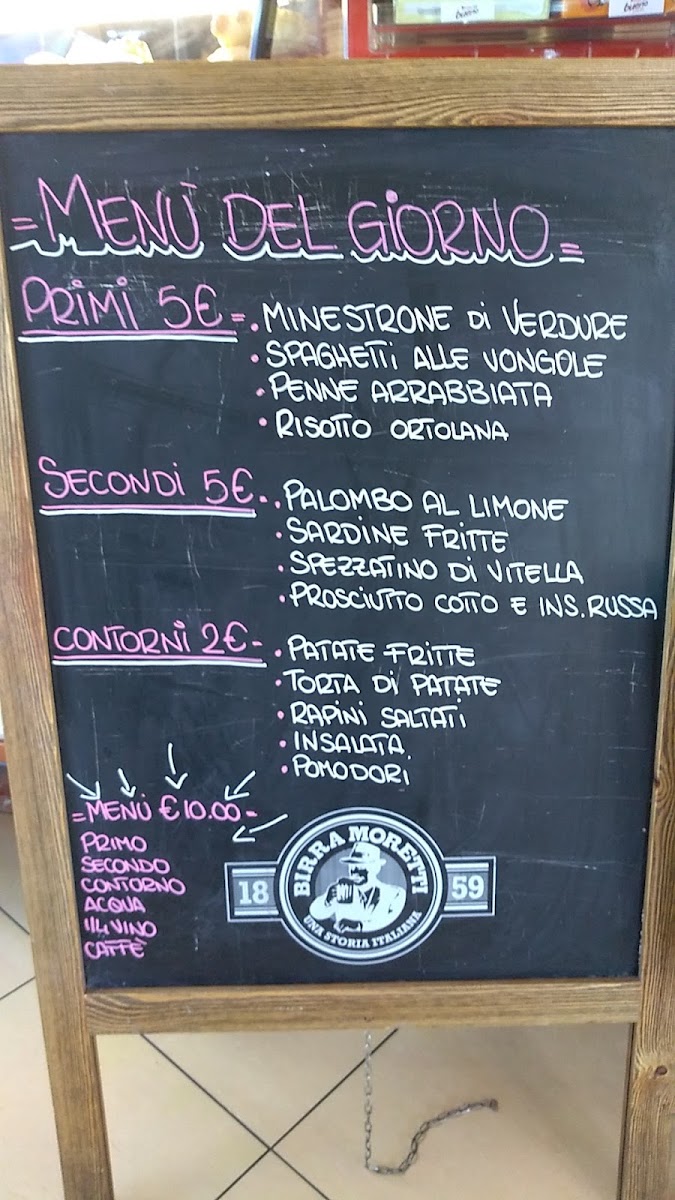 bueno
bueno
=MENÙ DEL GIORNO=
PRIMI 5€=
• MINESTRONE di VERDURE
• SPAGHETTI ALLE VONGOLE
• PENNE ARRABBIATA
• RISOTTO ORTOLANA
SECONDI 5€.
• PALOMBO AL LIMONE
• SARDINE FRITTE
• SPEZZATINO DI VITELLA
• PROSCIUTTO COTTO E INS. RUSSA
CONTORNI 2€-
• PATATE FRITTE
• TORTA DI PATATE
• RAPINI SALTATI
• INSALATA
• POMODORI
=MENÙ €10.00=
PRIMO
SECONDO
CONTORNO
ACQUA
1/4 VINO
CAFFÈ
BIRRA MORETTI
18 59
UNA STORIA ITALIANA